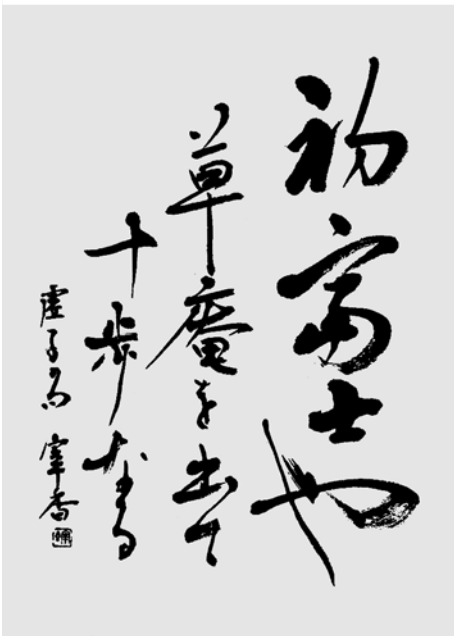 初富士や
草庵を出て
十歩なる
虚子の句 宰香